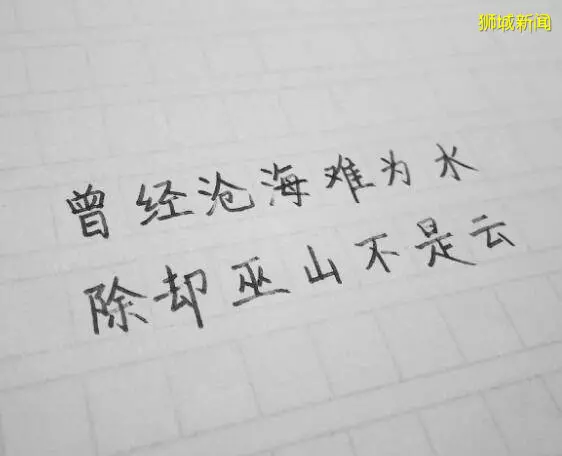 狮城新闻
曾经沧海难为水
除却巫山不是云